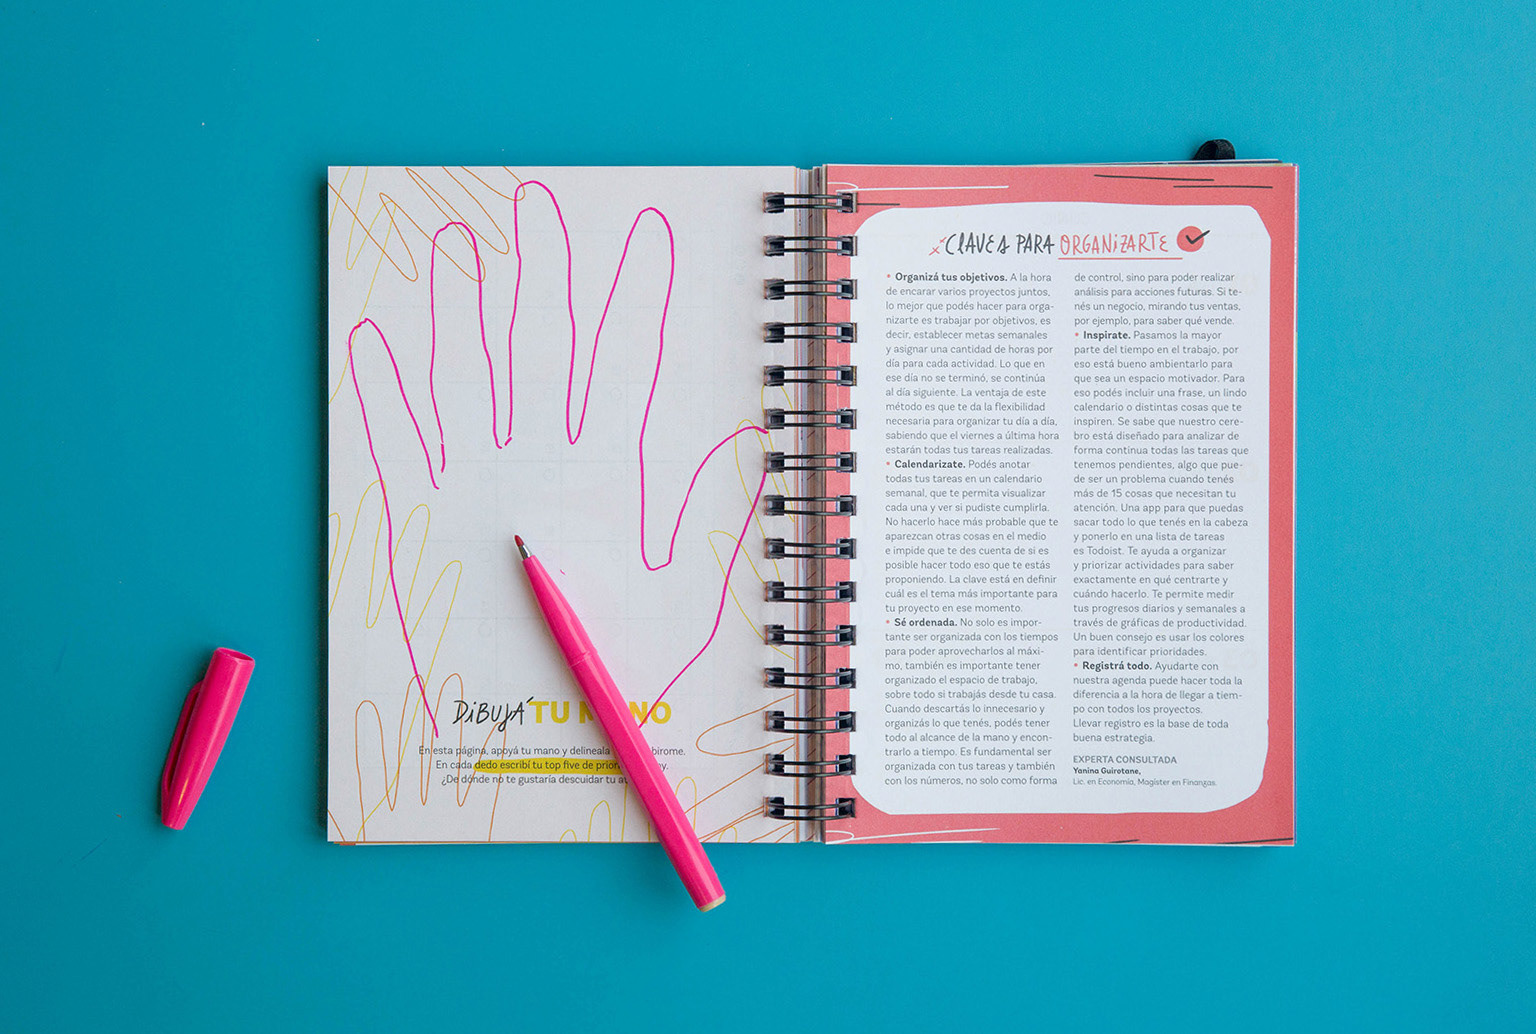 DIBUJÁ TU MANO
En esta página, apoyá tu mano y delineala birome.
En cada dedo escribí tu top five de prior hoy.
¿De dónde no te gustaría descuidar tu
CLAVES PARA ORGANIZARTE
• Organizá tus objetivos. A la hora
de encarar varios proyectos juntos,
lo mejor que podés hacer para orga-
nizarte es trabajar por objetivos, es
decir, establecer metas semanales
y asignar una cantidad de horas por
día para cada actividad. Lo que en
ese día no se terminó, se continúa
al día siguiente. La ventaja de este
método es que te da la flexibilidad
necesaria para organizar tu día a día,
sabiendo que el viernes a última hora
estarán todas tus tareas realizadas.
• Calendarizate. Podés anotar
todas tus tareas en un calendario
semanal, que te permita visualizar
cada una y ver si pudiste cumplirla.
No hacerlo hace más probable que te
aparezcan otras cosas en el medio
e impide que te des cuenta de si es
posible hacer todo eso que te estás
proponiendo. La clave está en definir
cuál es el tema más importante para
tu proyecto en ese momento.
• Sé ordenada. No solo es impor-
tante ser organizada con los tiempos
para poder aprovecharlos al máxi-
mo, también es importante tener
organizado el espacio de trabajo,
sobre todo si trabajás desde tu casa.
Cuando descartás lo innecesario y
organizás lo que tenés, podés tener
todo al alcance de la mano y encon-
trarlo a tiempo. Es fundamental ser
organizada con tus tareas y también
con los números, no solo como forma
de control, sino para poder realizar
análisis para acciones futuras. Si te-
nés un negocio, mirando tus ventas,
por ejemplo, para saber qué vende.
• Inspirate. Pasamos la mayor
parte del tiempo en el trabajo, por
eso está bueno ambientarlo para
que sea un espacio motivador. Para
eso podés incluir una frase, un lindo
calendario o distintas cosas que te
inspiren. Se sabe que nuestro cere-
bro está diseñado para analizar de
forma continua todas las tareas que
tenemos pendientes, algo que pue-
de ser un problema cuando tenés
más de 15 cosas que necesitan tu
atención. Una app para que puedas
sacar todo lo que tenés en la cabeza
y ponerlo en una lista de tareas
es Todoist. Te ayuda a organizar
y priorizar actividades para saber
exactamente en qué centrarte y
cuándo hacerlo. Te permite medir
tus progresos diarios y semanales a
través de gráficas de productividad.
Un buen consejo es usar los colores
para identificar prioridades.
• Registrá todo. Ayudarte con
nuestra agenda puede hacer toda la
diferencia a la hora de llegar a tiem-
po con todos los proyectos.
Llevar registro es la base de toda
buena estrategia.
EXPERTA CONSULTADA
Yanina Guirotane,
Lic. en Economía, Magíster en Finanzas.